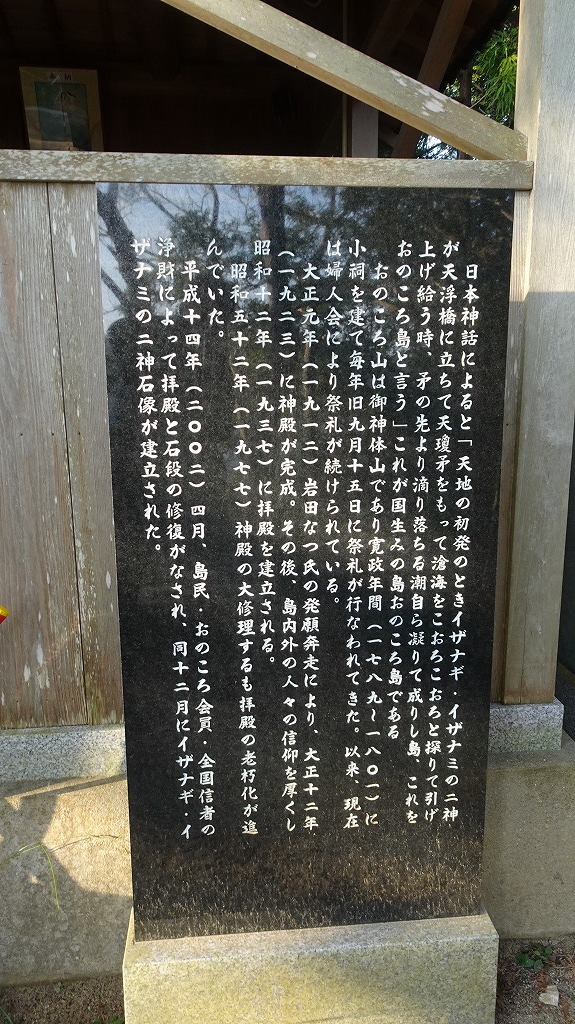 日本神話によると「天地の初発のときイザナギ・イザナミの二神
が天浮橋に立ちて天瓊矛をもって滄海をこおろこおろと探りて引げ
上げ給う時、矛の先より滴り落ちる潮自ら凝りて成りし島、これを
おのころ島と言う」これが国生みの島おのころ島である
おのころ山は御神体山であり寛政年間（一七八九〜一八〇一）に
小祠を建て毎年旧九月十五日に祭礼が行なわれてきた。以来、現在
は婦人会により祭礼が続けられている。
大正元年（一九一二）岩田なつ氏の発願奔走により、大正十二年
（一九二三）に神殿が完成。その後、島内外の人々の信仰を厚くし
昭和十二年（一九三七）に拝殿を建立される。
昭和五十二年（一九七七）神殿の大修理するも拝殿の老朽化が進
んでいた。
平成十四年（二〇〇二）四月、島民・おのころ会員・全国信者の
浄財によって拝殿と石段の修復がなされ、同十二月にイザナギ・イ
ザナミの二神石像が建立された。